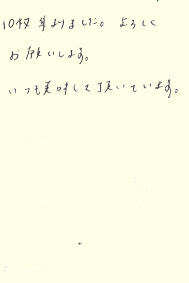 10枚 集りました。よろしく
お願いします。
いつも美味しく頂いています。